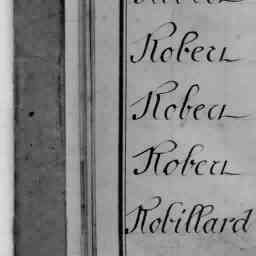 Robert
Robert
Robert
Robillard